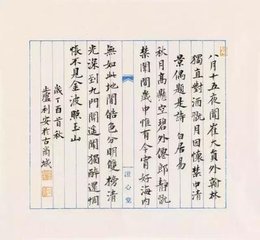 八月十五夜聞崔大員外翰林
獨直對酒翫月因懷禁中清
景偶題是詩 白居易
秋月高懸空碧外僊郎靜翫
禁闈間歲中惟有今宵好海內
無如此地閒皓色分明雙闕榜清
光深到九門關遙聞獨醉還惆
悵不見金波照玉山
歲丁酉首秋
盧利安於古商城
澄心堂